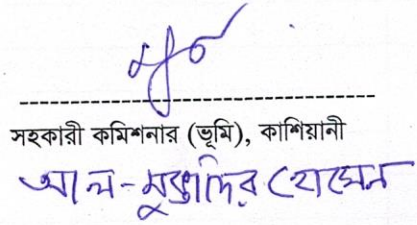 সহকারী কমিশনার (ভূমি), কাশিয়ানী
আল-মুক্তাদির হোসেন